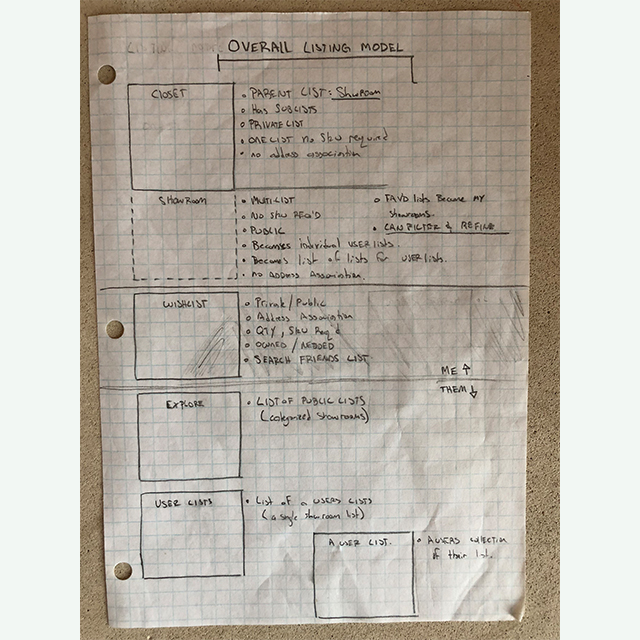 OVERALL LISTING MODEL
CLOSET
• PARENT LIST: Showroom
• Has SUBLISTS
• PRIVATE LIST
• ONE LIST no Sku required
• no address association
SHOWROOM
• MULTILIST
• NO SKU REQ'D
• PUBLIC
• Becomes individual USER lists.
• Becomes list of lists for USER lists.
• no Address Association.
• FAVD lists Become MY
showrooms.
• CAN FILTER & REFINE
WISHLIST
• Private/Public
• Address Association
• QTY, SKU Req'd
• OWNED/NEEDED
• SEARCH FRIENDS LIST
ME ↑
THEM ↓
EXPLORE
• LIST OF PUBLIC LISTS
(categorized showrooms)
USER LISTS
• List of a USERS LISTS
(a single showroom list)
A USER LIST.
• A USERS collection
of their list.